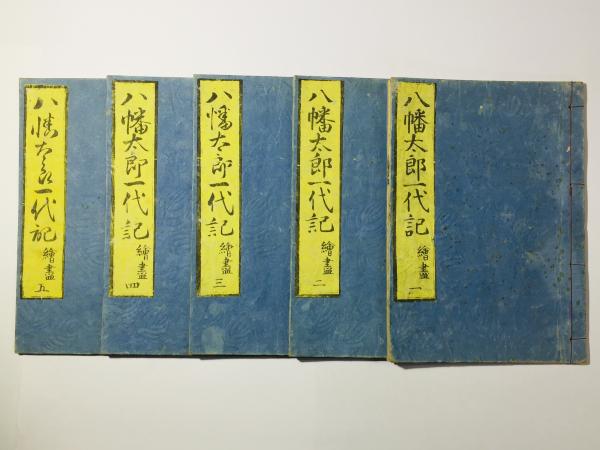 八幡太郎一代記 繪盡 一
八幡太郎一代記 繪盡 二
八幡太郎一代記 繪盡 三
八幡太郎一代記 繪盡 四
八幡太郎一代記 繪盡 五